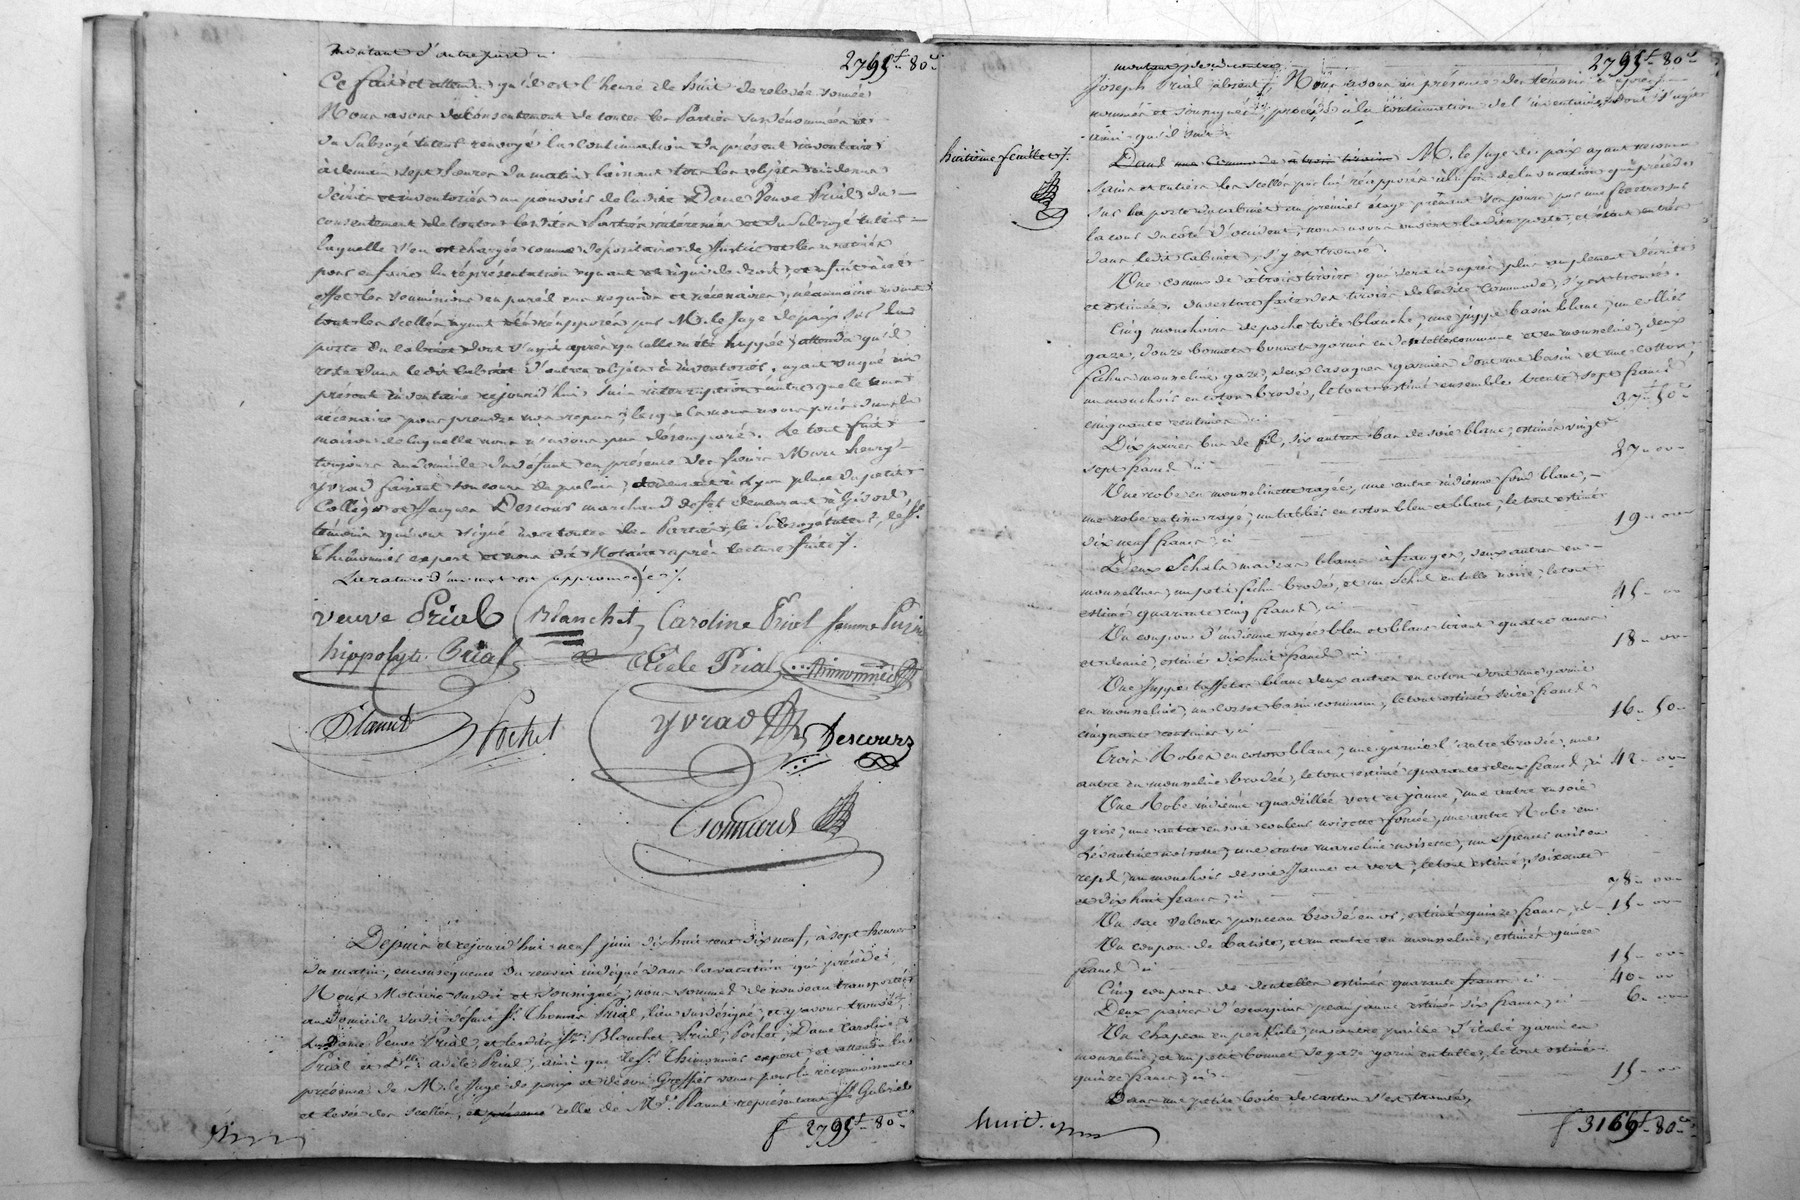 montant d'autre part ci 2795f. 80c
Ce fait et attendu qu'il est l'heure de huit de relevée sonnée
Nous avons du consentement de toutes les Parties susdénommées et
du subrogé tuteur renvoyé la continuation du présent inventaire
à demain sept heures du matin laissant tous les objets ci dessus
décrits et inventoriés au pouvoir de ladite Dame Veuve Prial du
consentement de toutes lesdites Parties intéressées et du Subrogé tuteur
laquelle s'en est chargée comme dépositaire de Justice et les a
pour en faire la représentation quand et à qui de droit, et a fait à cet
effet les soumissions en pareil cas requises et nécessaires, néanmoins
tout les scellés ayant été réapposés par M. le Juge de paix sur la
porte du cabinet dont s'agit après qu'elle eut été frappée, attendu qu'il
reste dans ledit cabinet d'autres objets à inventorier, ayant vaqué au
présent inventaire cejourd'hui sans interruption autre que le tems
nécessaire pour prendre nos repas, lesquels nous avons pris dans la
maison de laquelle nous n'avons pas désemparé. Le tout fait
toujours au domicile du défunt en présence des sieurs Marc henry
yvrad faisant son cours de pratique, demeurant à Lyon place du petit
Collège et Jacques Descours marchand de fer demeurant à Givors,
témoins qui ont signé avec toutes les Parties, le Subrogé tuteur, le Sr.
Thimonnier expert et nous dit Notaire après lecture faite.
La rature d'un mot est approuvée.
veuve Prial Blanchet Caroline Prial femme
hippolyte Prial Adèle Prial Thimonnier
Plannet Pochet yvrad Descours
Depuis et cejourd'hui neuf juin dix huit cent dix neuf, à sept heures
du matin, en conséquence du renvoi indiqué dans la vacation qui précède,
Nous Notaire susdit et soussigné, nous sommes de nouveau transportés
au Domicile dudit défunt Sr. Thomas Prial, lieu susdésigné, et y avons trouvé
la Dame Veuve Prial, et lesdits Srs. Blanchet, Prial, Pochet, Dame Caroline
Prial et Dlle adèle Prial, ainsi que le Sr. Thimonnier expert, et attendu la
présence de M. le Juge de paix et de son Greffier venus pour la reconnaissance
et levée des scellés, et présence celle de Mr. Plannet représentant Sr Gabriel
f 2795f. 80c
montant de ci contre 2795f. 80c
Joseph Prial absent, Nous avons en présence des témoins ci après
nommés et soussignés, procédé à la continuation de l'inventaire dont s'agit
ainsi qu'il suit.
huitième feuillet.
Dans une Commode à trois tiroirs M. le Juge de paix ayant reconnu
sains et entiers les scellés par lui réapposés à la fin de la vacation qui précède
sur la porte du cabinet au premier étage prenant son jour par une fenêtre sur
la cour du côté d'occident, nous avons ouvert ladite porte et étant entrés
dans ledit Cabinet, s'y est trouvé.
Une commode à trois tiroirs qui sera ci après plus amplement décrite
et estimée. Ouverture faite des tiroirs de ladite Commode, s'y est trouvé.
Cinq mouchoirs de poche toile blanche, une juppe basin blanc, un collier
gaze, douze bonnets garnis en dentelles communes et en mousseline, deux
fichus mousseline gaze, deux casaques garnies dont une basin et une coton
un mouchoir en coton brodé, le tout estimé ensemble trente sept francs
cinquante centimes ci 37. 50
Dix paires bas de fil, six autres bas de soie blanc, estimés vingt
sept francs ci 27. 00
Une robe en mousselinette rayée, une autre indienne fond blanc,
une robe en tissu rayé, un tablier en coton bleu et blanc, le tout estimé
dix neuf francs, ci 19. 00
Deux Schals madras blancs à franges, deux autres en
mousseline, un petit fichu brodé, et un Schal en tulle noir, le tout
estimé quarante cinq francs, ci 45. 00
Un coupon d'indienne rayée bleu et blanc tirant quatre aunes
et demie, estimé dix huit francs ci 18. 00
Une Juppe taffetas blanc deux autres en coton dont une garnie
en mousseline, un corset basin commun, le tout estimé seize francs
cinquante centimes, ci 16. 50
Trois Robes en coton blanc, une garnie l'autre brodée, une
autre en mousseline brodée, le tout estimé quarante deux francs, ci 42. 00
Une Robe indienne quadrillée vert et jaune, une autre en soie
grise, une autre en soie couleur noisette foncée, une autre Robe en
Lévantine noisette, une autre marceline noisette, un spencer noir en
, un mouchoir de soie Jaune et vert, le tout estimé, soixante
et dix huit francs, ci 78. 00
Un sac velours ponceau brodé en or, estimé quinze francs, ci 15. 00
Un coupon de Batiste, et un autre en mousseline, estimés quinze
francs ci 15. 00
Cinq coupons de dentelles estimés quarante francs ci 40. 00
Deux paires d'escarpins peau jaune estimés six francs, ci 6. 00
Un Chapeau en perkale, un autre paille d'italie garni en
mousseline, et un petit bonnet de gaze garni en tulle, le tout estimé
quinze francs, ci 15. 00
Dans une petite boite de carton s'est trouvé,
huit.
f 3169f. 80c